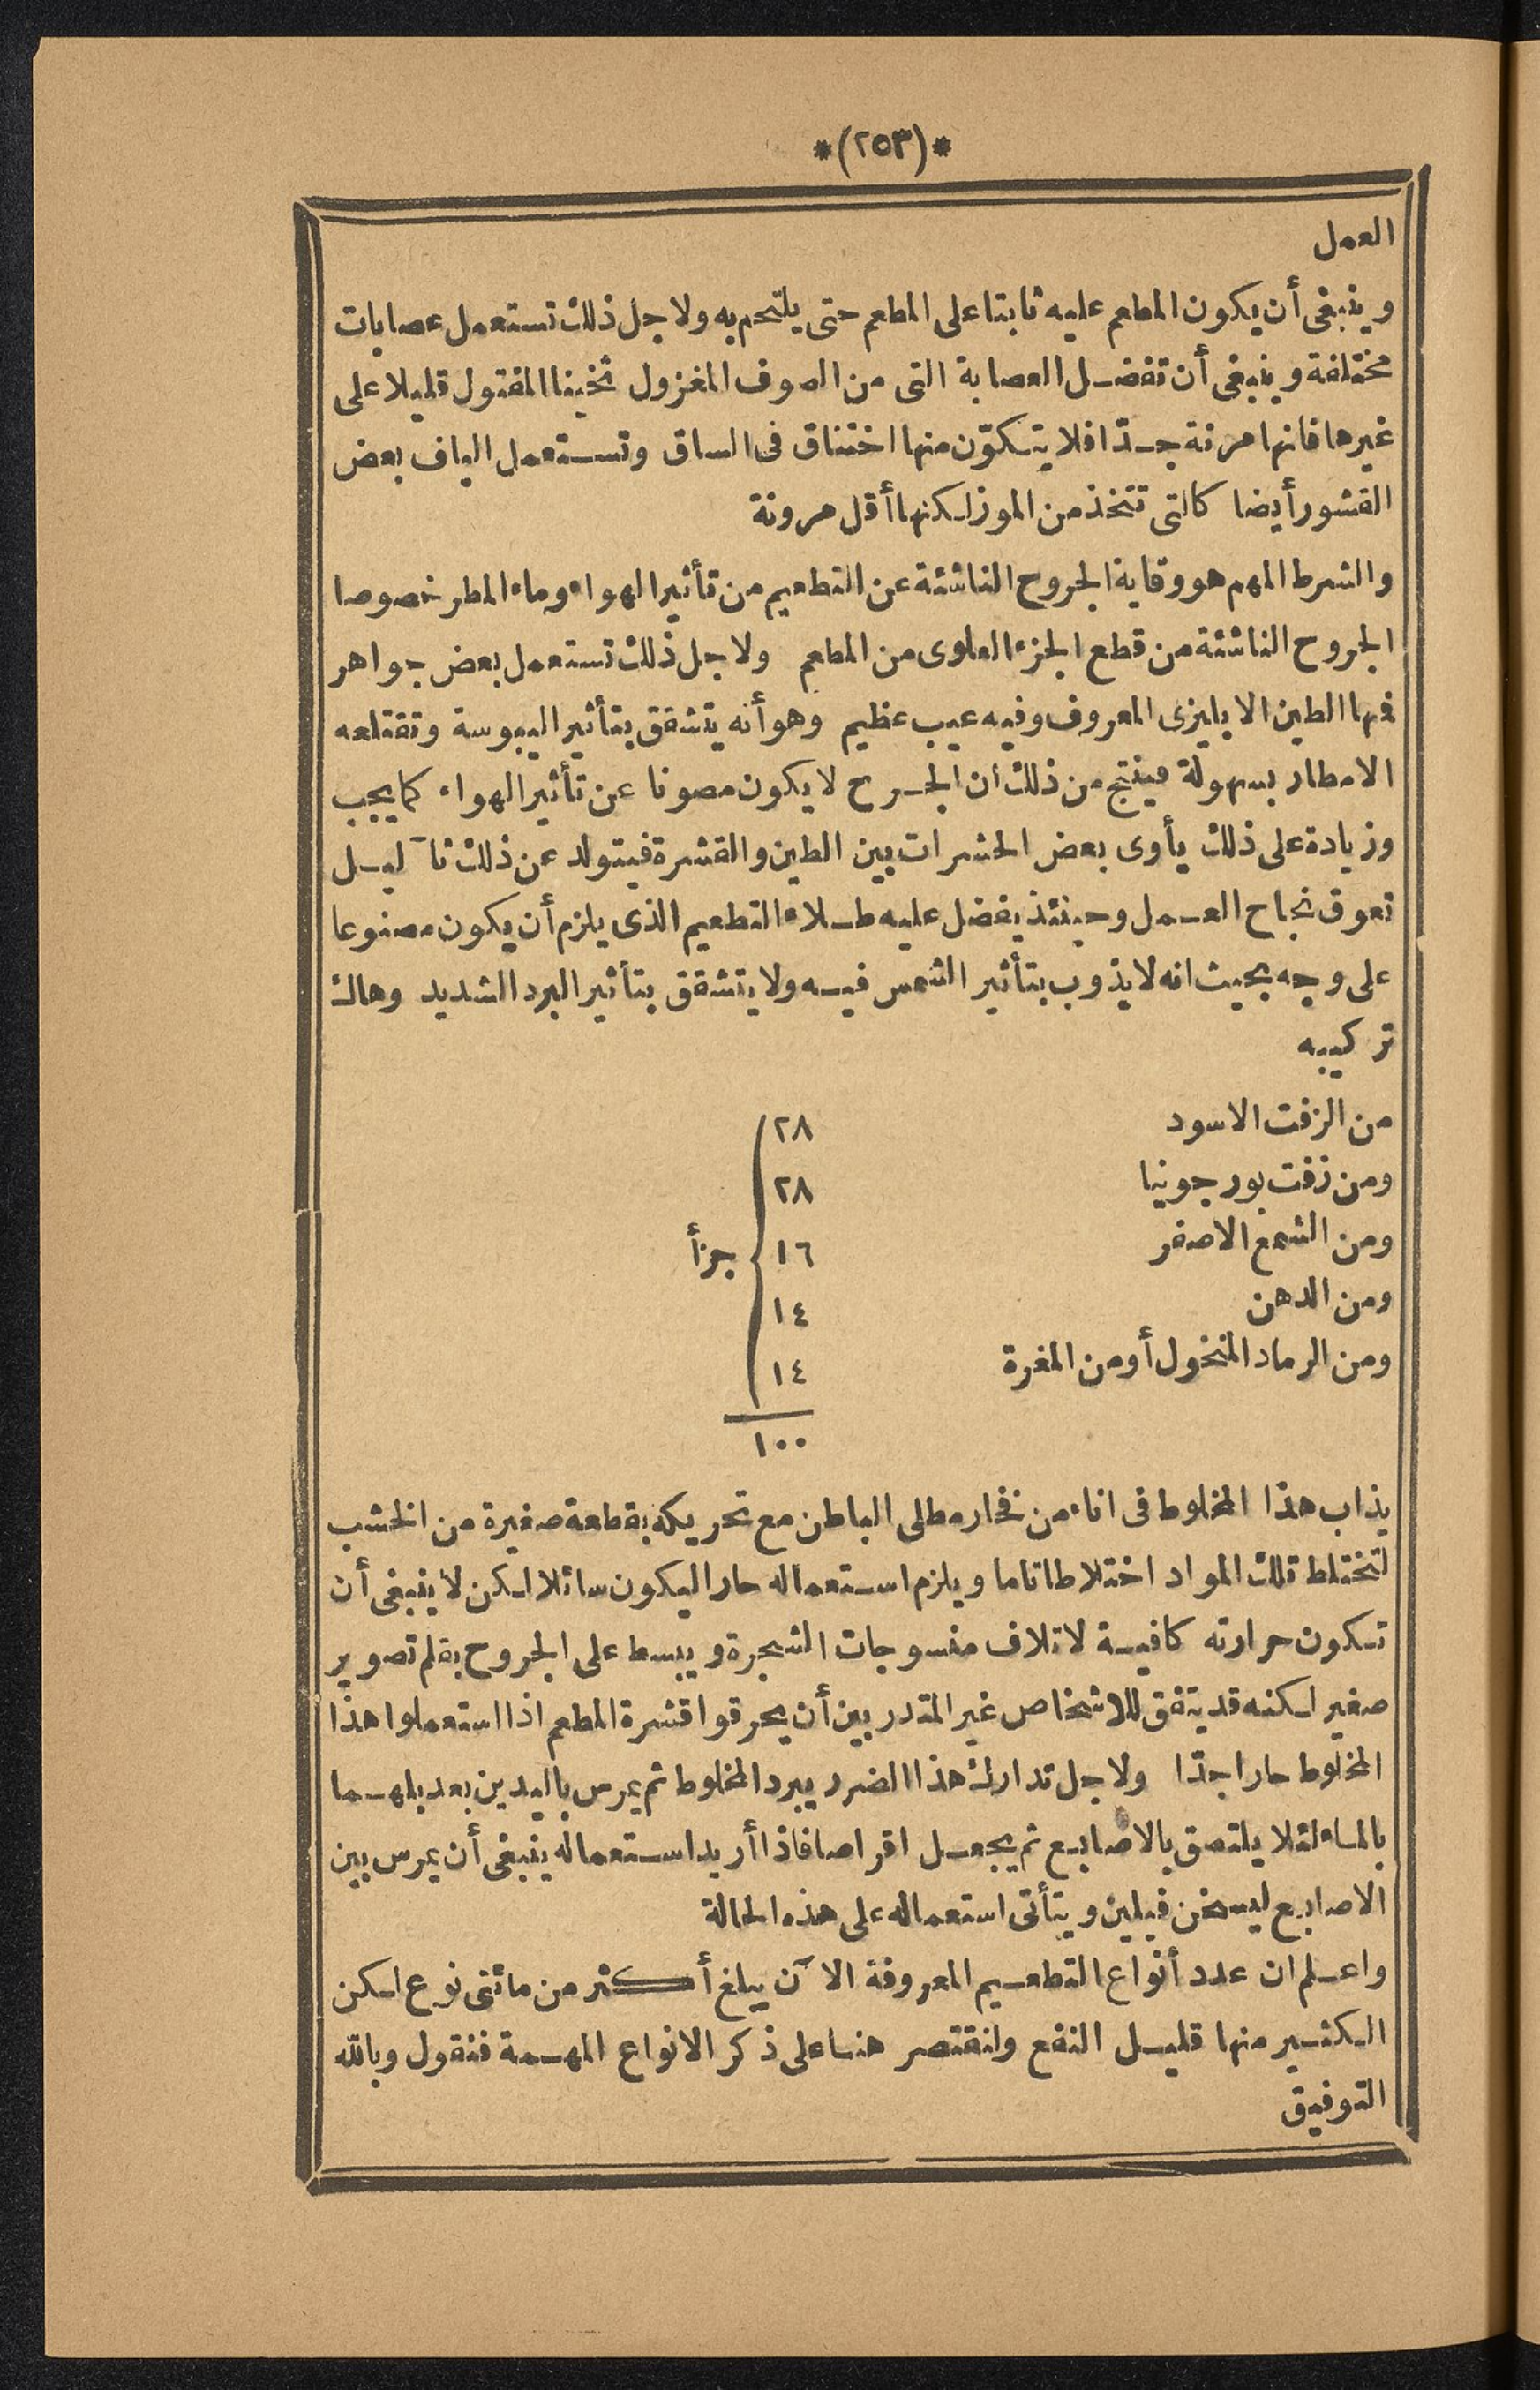 *(٢٥٣)*
العمل
وينبغى أن يكون المطعم عليه ثابتا على المطعم حتى يلتحم به ولاجل ذلك تستعمل عصابات
مختلفة وينبغى أن تفضل العصابة التى من الصوف المغزول ثخينا المفتول قليلا على
غيرها فانها مرنة جدّا فلا يتكوّن منها اختناق فى الساق وتستعمل الياف بعض
القشور أيضا كالتى تتخذ من الموز لكنها أقل مرونة
والشرط المهم هو وقاية الجروح الناشئة عن التطعيم من تأثير الهواء وماء المطر خصوصا
الجروح الناشئة من قطع الجزء العلوى من المطعم ولاجل ذلك تستعمل بعض جواهر
فمنها الطين الابليزى المعروف وفيه عيب عظيم وهو أنه يتشقق بتأثير اليبوسة وتقتلعه
الامطار بسهولة فينتج من ذلك ان الجرح لا يكون مصونا عن تأثير الهواء كما يجب
وزيادة على ذلك يأوى بعض الحشرات بين الطين والقشرة فيتولد عن ذلك ثآليل
تعوق نجاح العمل وحينئذ يفضل عليه طلاء التطعيم الذى يلزم أن يكون مصنوعا
على وجه بحيث انه لا يذوب بتأثير الشمس فيه ولا يتشقق بتأثير البرد الشديد وهاك
تركيبه
من الزفت الاسود ٢٨
ومن زفت بورجونيا ٢٨
ومن الشمع الاصفر ١٦ جزأ
ومن الدهن ١٤
ومن الرماد المنخول أو من المغرة ١٤
١٠٠
يذاب هذا المخلوط فى اناء من فخار مطلى الباطن مع تحريكه بقطعة صغيرة من الخشب
لتختلط تلك المواد اختلاطا تاما ويلزم استعماله حارا ليكون سائلا لكن لا ينبغى أن
تكون حرارته كافية لاتلاف منسوجات الشجرة ويبسط على الجروح بقلم تصوير
صغير لكنه قد يتفق للاشخاص غير المتدربين أن يحرقوا قشرة المطعم اذا استعملوا هذا
المخلوط حارا جدّا ولاجل تدارك هذا الضرر يبرد المخلوط ثم يمرس باليدين بعد بلهما
بالماء لئلا يلتصق بالاصابع ثم يجعل اقراصا فاذا أريد استعماله ينبغى أن يمرس بين
الاصابع ليسخن فيلين ويتأتى استعماله على هذه الحالة
واعلم ان عدد أنواع التطعيم المعروفة الآن يبلغ أكثر من مائتى نوع لكن
الكثير منها قليل النفع ولنقتصر هنا على ذكر الانواع المهمة فنقول وبالله
التوفيق